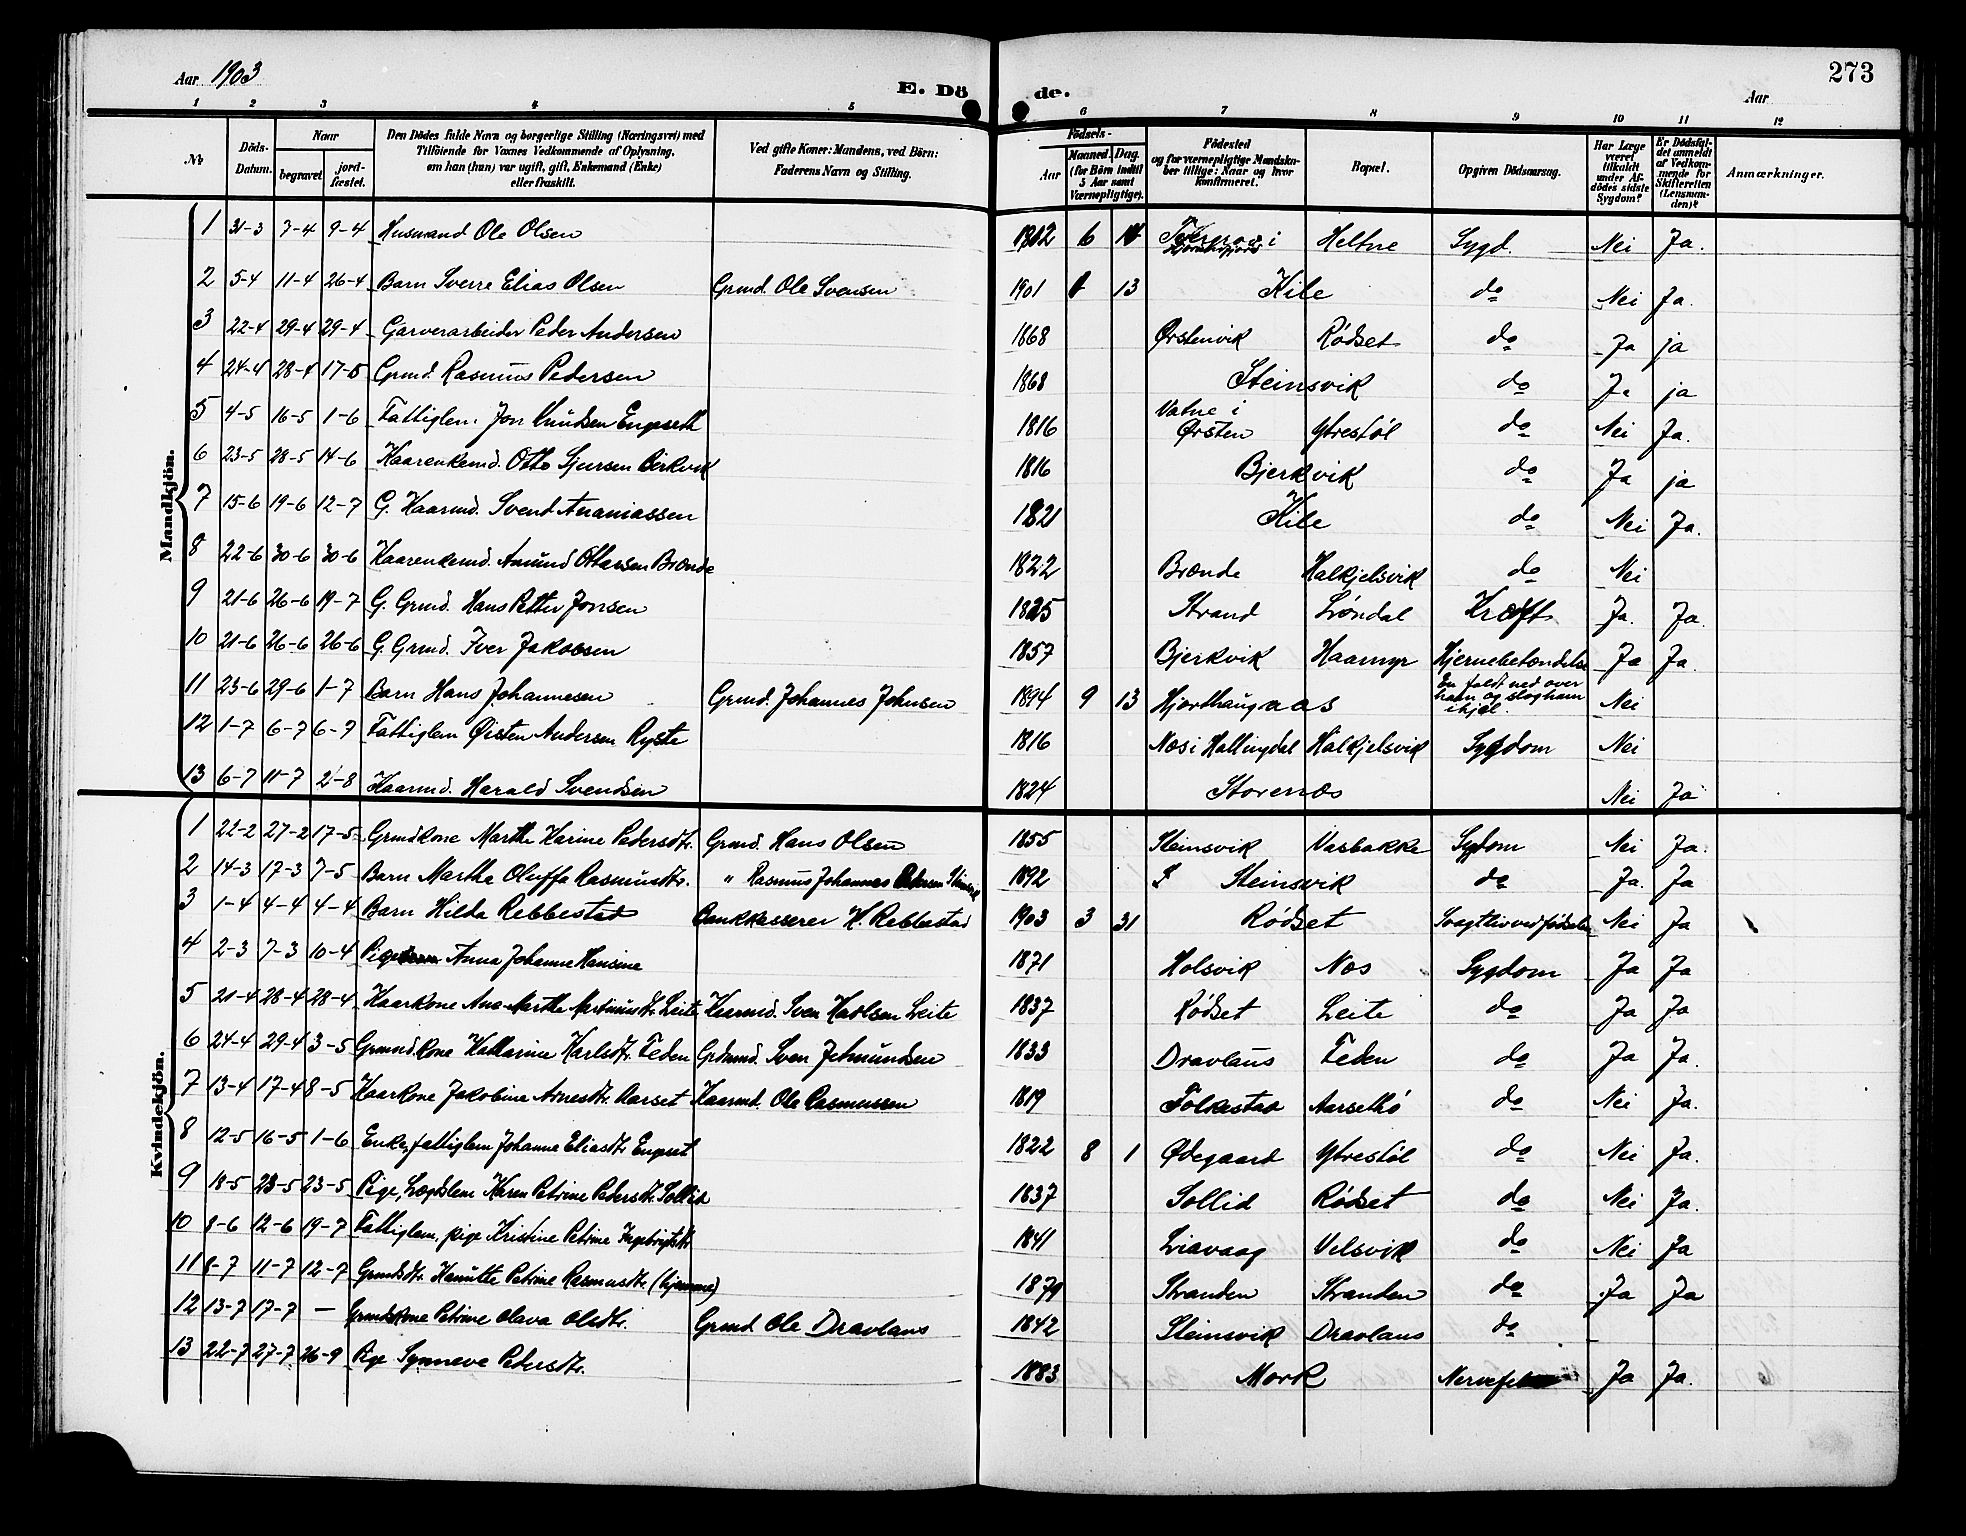 Aar 1903
E. Dö
de.
273
Aar
1 2 3 4 5 6 7 8 9 10 11 12
№
Döds-Datum.
Naar
begravet
jord-fæstet.
Den Dödes fulde Navn og borgerlige Stilling (Næringsvei) med
Tilföiende for Voxnes Vedkommende af Oplysning,
om han (hun) var ugift, gift, Enkemand (Enke)
eller fraskilt.
Ved gifte Koner: Mandens, ved Börn:
Faderens Navn og Stilling.
Födsels-
Aar
Maaned. Dag.
(for Börn indtil
5 Aar samt
Værnepligtige).
Födested
og for værnepligtige Mandska-
ber tillige: Naar og hvor
konfirmeret.
Bopæl.
Opgiven Dödsaarsag.
Har Læge
været
tilkaldt
under Af-
dödes sidste
Sygdom?
Er Dödsfal-
det anmeldt
af Vedkom-
mende for
Skifteretten
(Lensman-
den)?
Anmærkninger.
Mandkjön.
1 31-3 7-4 9-4 Husmand Ole Olsen 6 14 Heltne Sygd. Nei Ja.
2 5-4 11-4 26-4 Barn Sverre Elias Olsen Grmd. Ole Svensen 1901 1 13 Kile do Nei Ja.
3 22-4 29-4 29-4 Garverarbeider Peder Andersen 1868 Ørstenvik Rødset do Ja ja
4 24-4 28-4 17-5 Grmd. Rasmus Pedersen 1868 Steinsvik do Ja ja
5 4-5 16-5 1-6 Fattiglem. Jon Knudsen Engeseth 1816 Vatne i Ørsten Ytrestøl do Nei Ja.
6 23-5 28-5 14-6 Kaarenkemd. Otto Sjursen Birkvik 1816 Bjerkvik do Ja ja
7 15-6 19-6 12-7 G. Kaarmd. Svend Ananiassen 1821 Kile do Nei Ja.
8 22-6 30-6 30-6 Kaarenkemd. Amund Ottarsen Brænde 1822 Brænde Halkjelsvik do Nei
9 21-6 26-6 19-7 G. Grmd. Hans Petter Jonsen 1825 Strand Løndal Kræft Ja. Ja.
10 21-6 26-6 26-6 G. Grmd. Iver Jakobsen 1857 Bjerkvik Haamyr Hjernebetændelse Ja Ja.
11 23-6 29-6 1-7 Barn Hans Johannesen Grmd. Johannes Johnsen 1894 9 13 Hjorthaugaas En faldt ned over ham og slog ham ihjel. Nei
12 1-7 6-7 6-7 Fattiglem Øisten Andersen Ryste 1816 Næs i Hallingdal Halkjelsvik Sygdom Nei
13 6-7 11-7 2-8 Kaarmd. Harald Svendsen 1824 Storenæs Nei Ja
Kvindekjön.
1 22-2 27-2 17-5 Grmdkone Marthe Karine Pedersdtr. Grmd. Hans Olsen 1855 Steinsvik Vasbakke Sygdom Nei Ja.
2 14-3 17-3 7-5 Barn Martha Oluffa Rasmusdtr. " Rasmus Johannes Pedersen Steinsvik 1892 Steinsvik do Ja. Ja
3 1-4 4-4 4-4 Barn Hilda Rebbestad Bankkasserer H. Rebbestad 1903 3 31 Rødset Svagtliv ved fødselen Nei Ja
4 2-3 7-3 10-4 Pige Anna Johanne Hansine 1871 Holsvik Næs Sygdom Ja Ja
5 21-4 28-4 28-4 Kaarkone Ane Marthe Martinusdtr. Leite Kaarmd. Sven Leite 1837 Rødset Leite do Ja Ja
6 24-4 29-4 3-5 Grmndkone Katharine Karlsdtr. Feden Grdmnd. Sven Jetmundsen 1833 Dravlaus Feden do Ja Ja.
7 13-4 17-4 8-5 Kaarkone Jakobine Arnesdtr. Aarset Kaarmd. Ole Rasmussen 1819 Folkestad Aarsethø do Nei Ja.
8 12-5 16-5 1-6 Enke, fattiglem Johanne Eliasdtr Engeset 1822 8 1 Ødegaard Ytrestøl do Nei Ja.
9 18-5 23-5 23-5 Pige, Lægdslem Karen Petrine Pedersdtr. Sollid 1837 Sollid Rødset do Nei Ja.
10 8-6 12-6 19-7 Fattiglem, pige Kristine Petrine Ingebrigtsdtr 1841 Liavaag Velsvik do Nei Ja
11 8-7 11-7 12-7 Grmdsdtr. Petrine Rasmusdtr. (hjemme) 1879 Stranden Stranden do Ja Ja
12 13-7 17-7 — Grmdskone Petrine Olava Olsdtr. Grmd Ole Dravlaus 1842 Steinsvik Dravlaus do
13 22-7 27-7 26-9 Pige Synneve Pedersdtr. 1883 Mork Ja Ja.